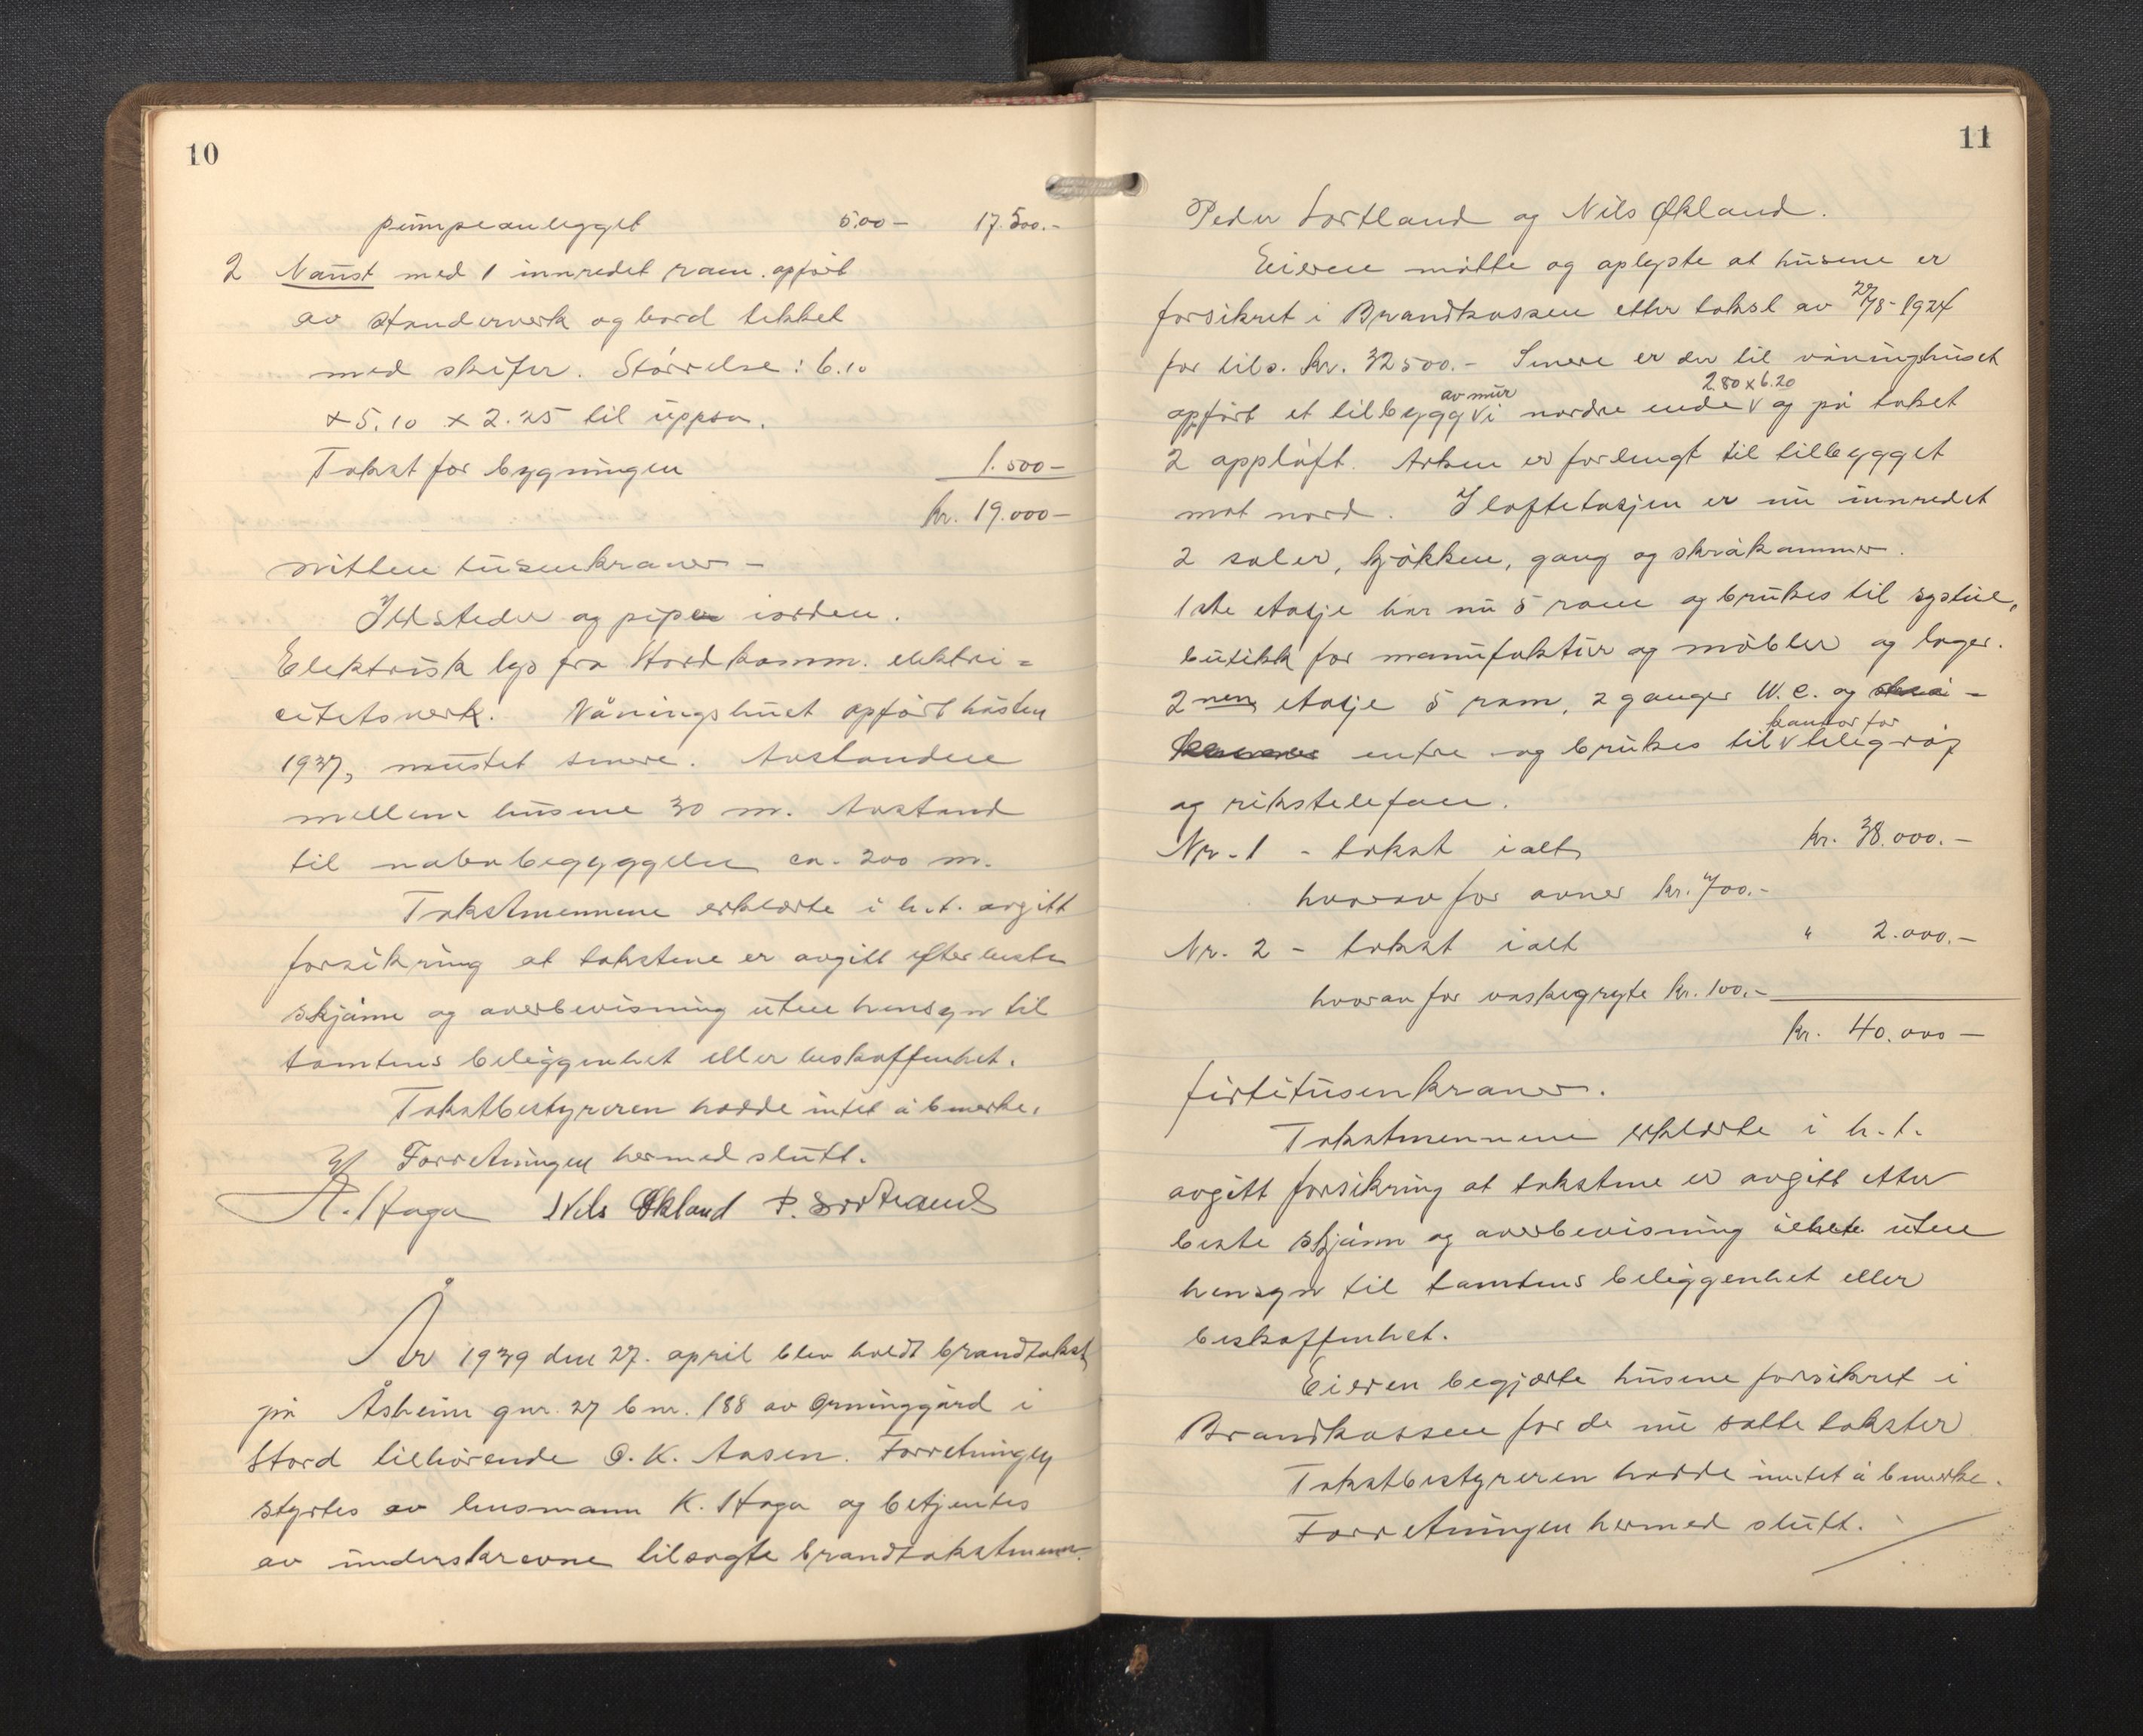 10
pumpeanlegget 500- 17.500.-
2 Naust med 1 innredet rom. opført
av standerverk og bord tekket
med skifer. Størrelse: 6.10
x 5.10 x 2.25 til uppsa.
Takst for bygningen 1.500-
kr. 19.000-
nitten tusenkroner -
Ildsteder og piper iorden.
Elektrisk lys fra Stord komm. elektri=
citetsverk. Våningshuset opført høsten
1937, naustet senere. Avstanden
mellem husene 30 m. Avstand
til nabobebyggelse ca. 200 m.
Takstmennene erklærte i h.t. avgitt
forsikring at takstene er avgitt efter beste
skjønn og overbevisning uten hensyn til
tomtens beliggenhet eller beskaffenhet.
Takstbestyreren hadde intet å bmerke.
Forretningen hermed slutt.
K. Haga Nils Økland P. Sortland
År 1939 den 27. april blev holdt brandtakst
på Åsheim gnr. 27 bnr. 188 av Orninggård i
Stord tilhørende O. K. Aasen. Forretningen
styrtes av lensmann K. Haga og betjentes
av underskrevne tilsagte brandtakstmenn.
11
Peder Sortland og Nils Økland.
Eieren møtte og oplyste at husene er
forsikret i Brandkassen etter takst av 27/8-1924
for tils. kr. 32500.- Senere er der til våninghuset
av mur 2.80 x 6.20
opført et tilbygg v i nordre ende v og på taket
2 oppløft. Arken er forlengt til tilbygget
mot nord. I loftetasjen er nu innredet
2 saler, kjøkken, gang og skråkammer.
1ste etasje har nu 5 rom og brukes til systue,
butikk for manufaktur og møbler og lager.
2nen etasje 5 rom, 2 ganger W.C. og skrå-
kontor for
kammer entre og brukes til v telegraf
og rikstelefon.
Nr. 1 - takst ialt kr. 38.000.-
hvorav for ovner kr. 700.-
Nr. 2 - takst ialt " 2.000.-
hvorav for vaskegryte kr. 100.-
kr. 40.000-
førtitusenkroner.
Takstmennene erklærte i h.t.
avgitt forsikring at takstene er avgitt etter
beste skjønn og overbevisning uten
hensyn til tomtens beliggenhet eller
beskaffenhet.
Eieren begjærte husene forsikret i
Brandkassen for de nu satte takster
Takstbestyreren hadde intet å bmerke.
Forretningen hermed slutt.